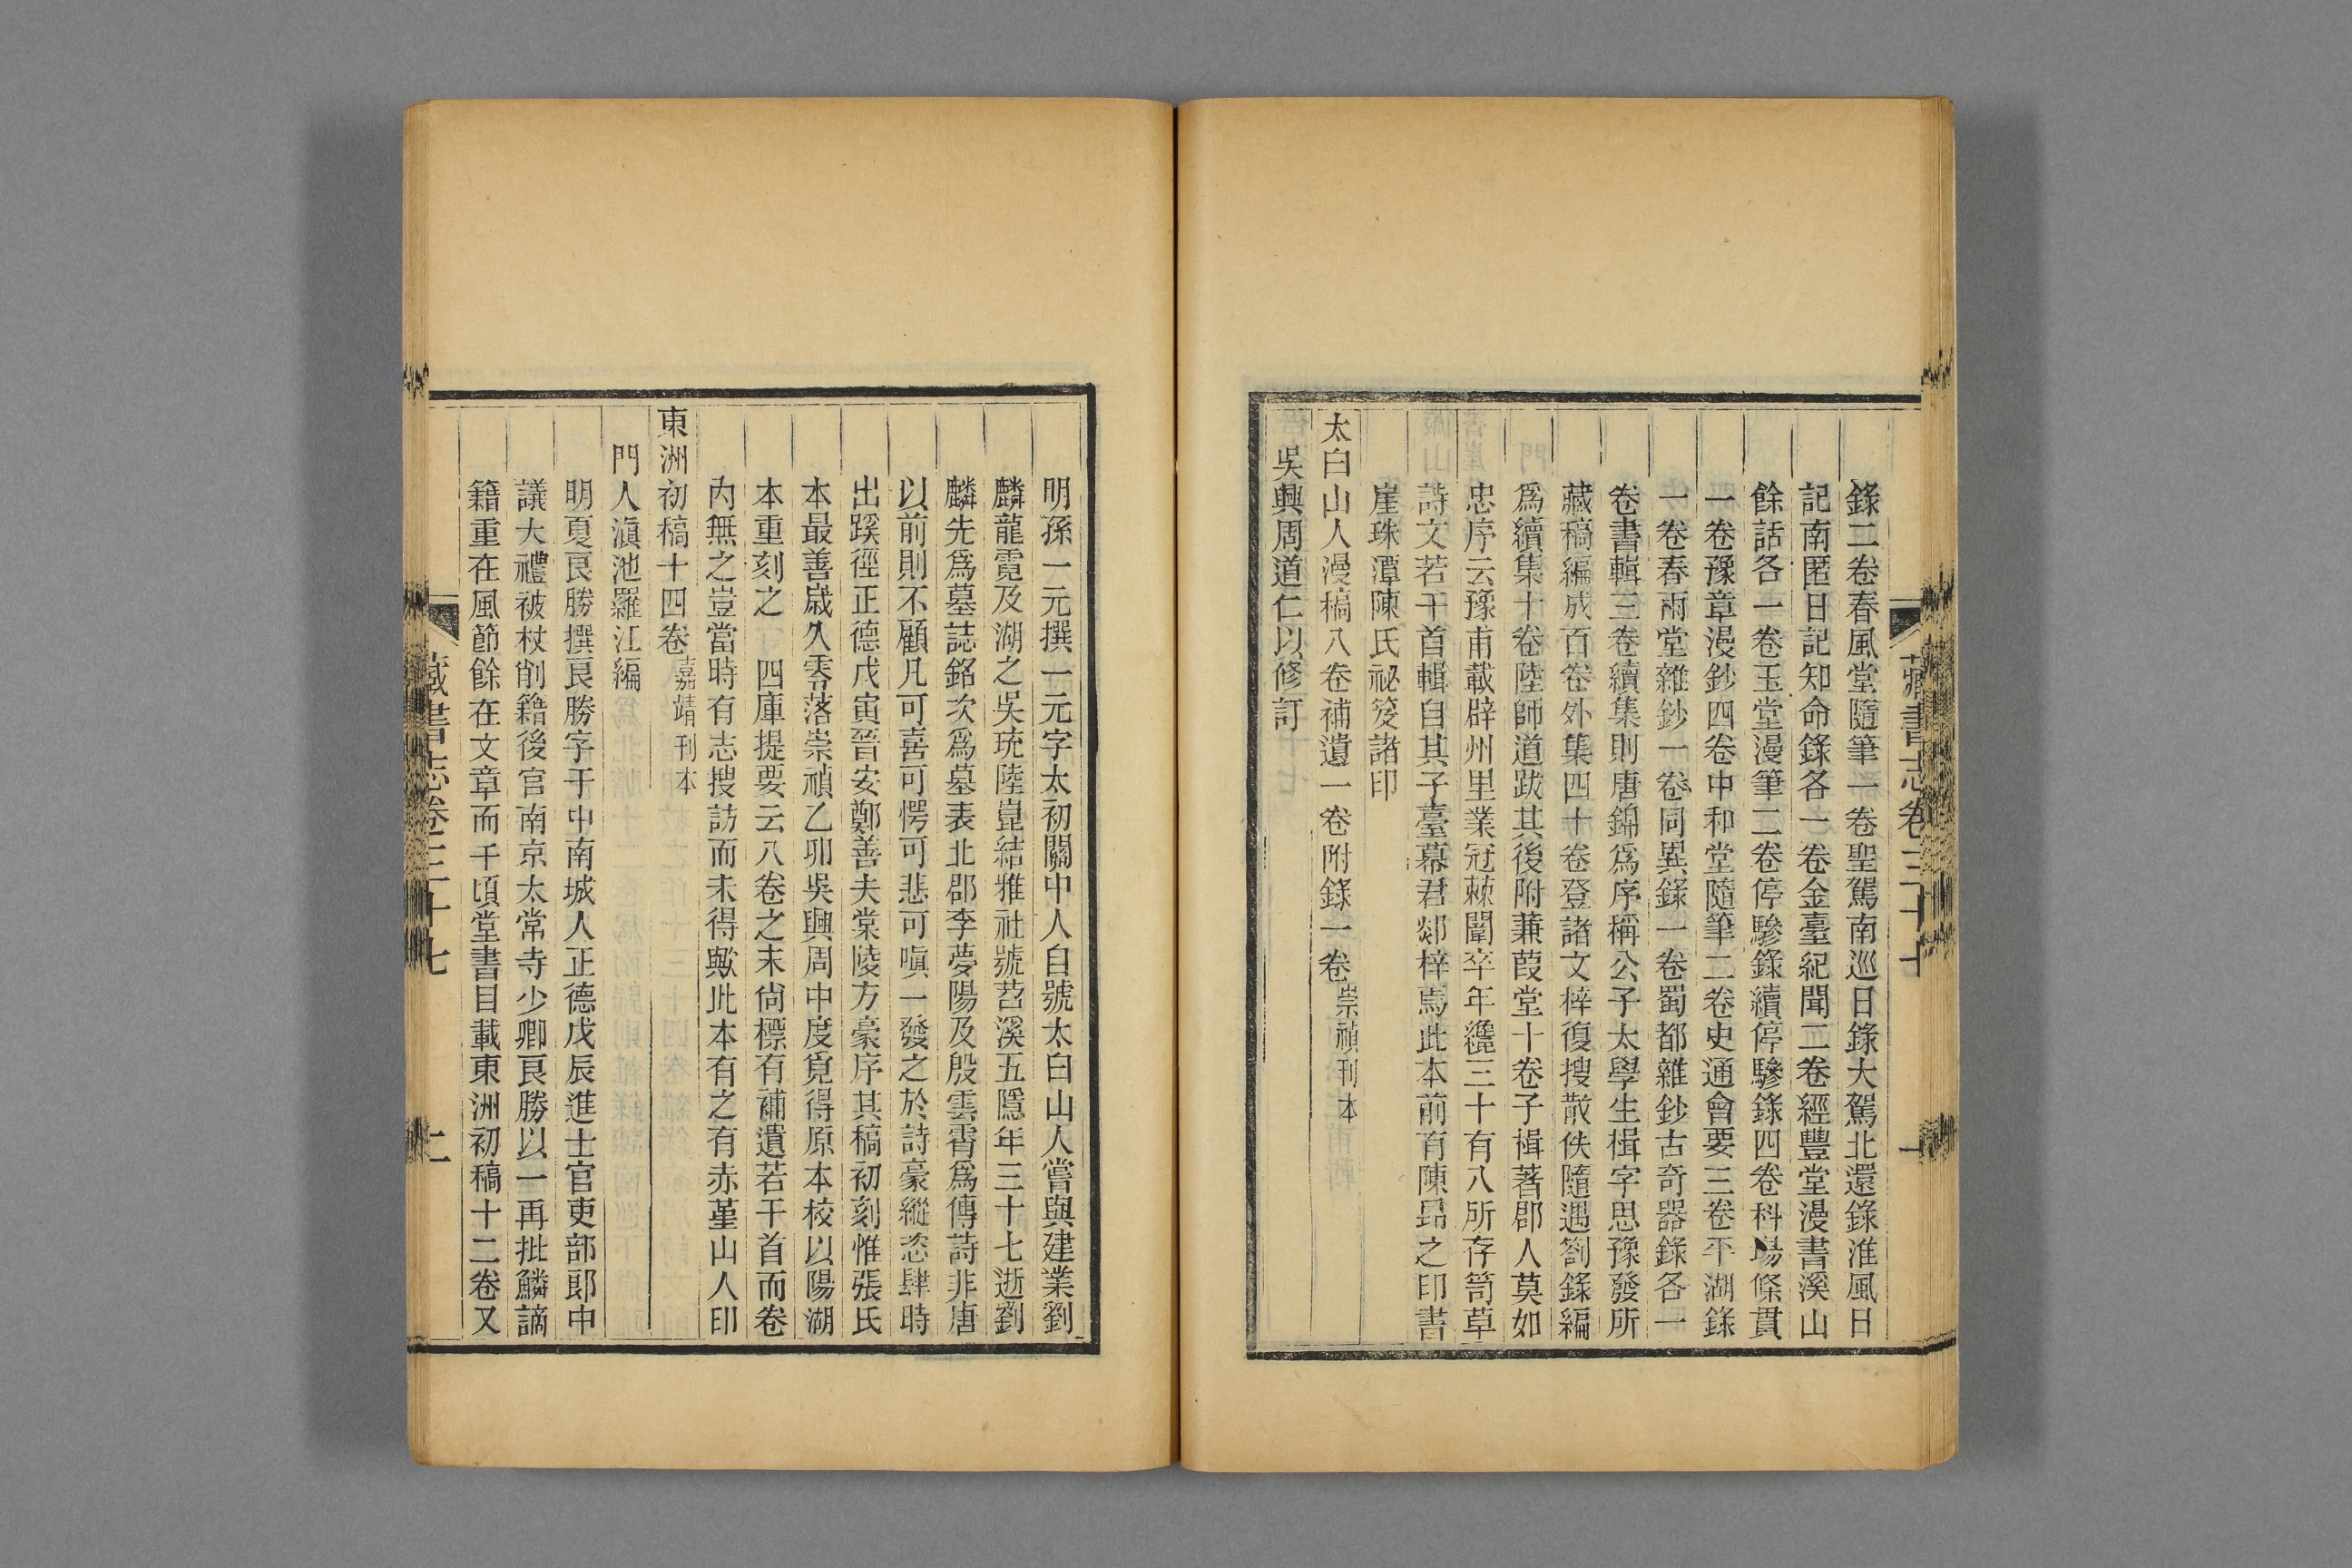 藏書志卷三十七
錄二卷春風堂隨筆一卷聖駕南巡日錄大駕北還錄淮風日
記南匿日記知命錄各一卷金臺紀聞二卷經豐堂漫書溪山
餘話各一卷玉堂漫筆二卷停驂錄續停驂錄四卷科場條貫
一卷豫章漫鈔四卷中和堂隨筆二卷史通會要三卷平湖錄
一卷春雨堂雜鈔一卷同異錄一卷蜀都雜鈔古奇器錄各一
卷書輯三卷續集則唐錦爲序稱公子太學生楫字思豫發所
藏稿編成百卷外集四十卷登諸文梓復搜散佚隨遇劄錄編
爲續集十卷陸師道跋其後附蒹葭堂十卷子楫著郡人莫如
忠序云豫甫載辟州里業冠棘闈卒年纔三十有八所存笥草
詩文若干首輯自其子臺幕君郯梓焉此本前有陳昂之印書
崖珠潭陳氏祕笈諸印
太白山人漫稿八卷補遺一卷附錄一卷崇禎刊本
吳興周道仁以修訂
明孫一元撰一元字太初關中人自號太白山人嘗與建業劉
麟龍霓及湖之吳珫陸崑結雅社號苕溪五隱年三十七逝劉
麟先爲墓誌銘次爲墓表北郡李夢陽及殷雲霄爲傳詩非唐
以前則不顧凡可喜可愕可悲可嗔一發之於詩豪縱恣肆時
出蹊徑正德戊寅晉安鄭善夫棠陵方豪序其稿初刻惟張氏
本最善嵗久零落崇禎乙卯吳興周中度覓得原本校以陽湖
本重刻之　四庫提要云八卷之末尙標有補遺若干首而卷
內無之豈當時有志搜訪而未得歟此本有之有赤堇山人印
東洲初稿十四卷嘉靖刊本
門人滇池羅江編
明夏良勝撰良勝字于中南城人正德戊辰進士官吏部郎中
議大禮被杖削籍後官南京太常寺少卿良勝以一再批鱗謫
籍重在風節餘在文章而千頃堂書目載東洲初稿十二卷又
藏書志卷三十七
二